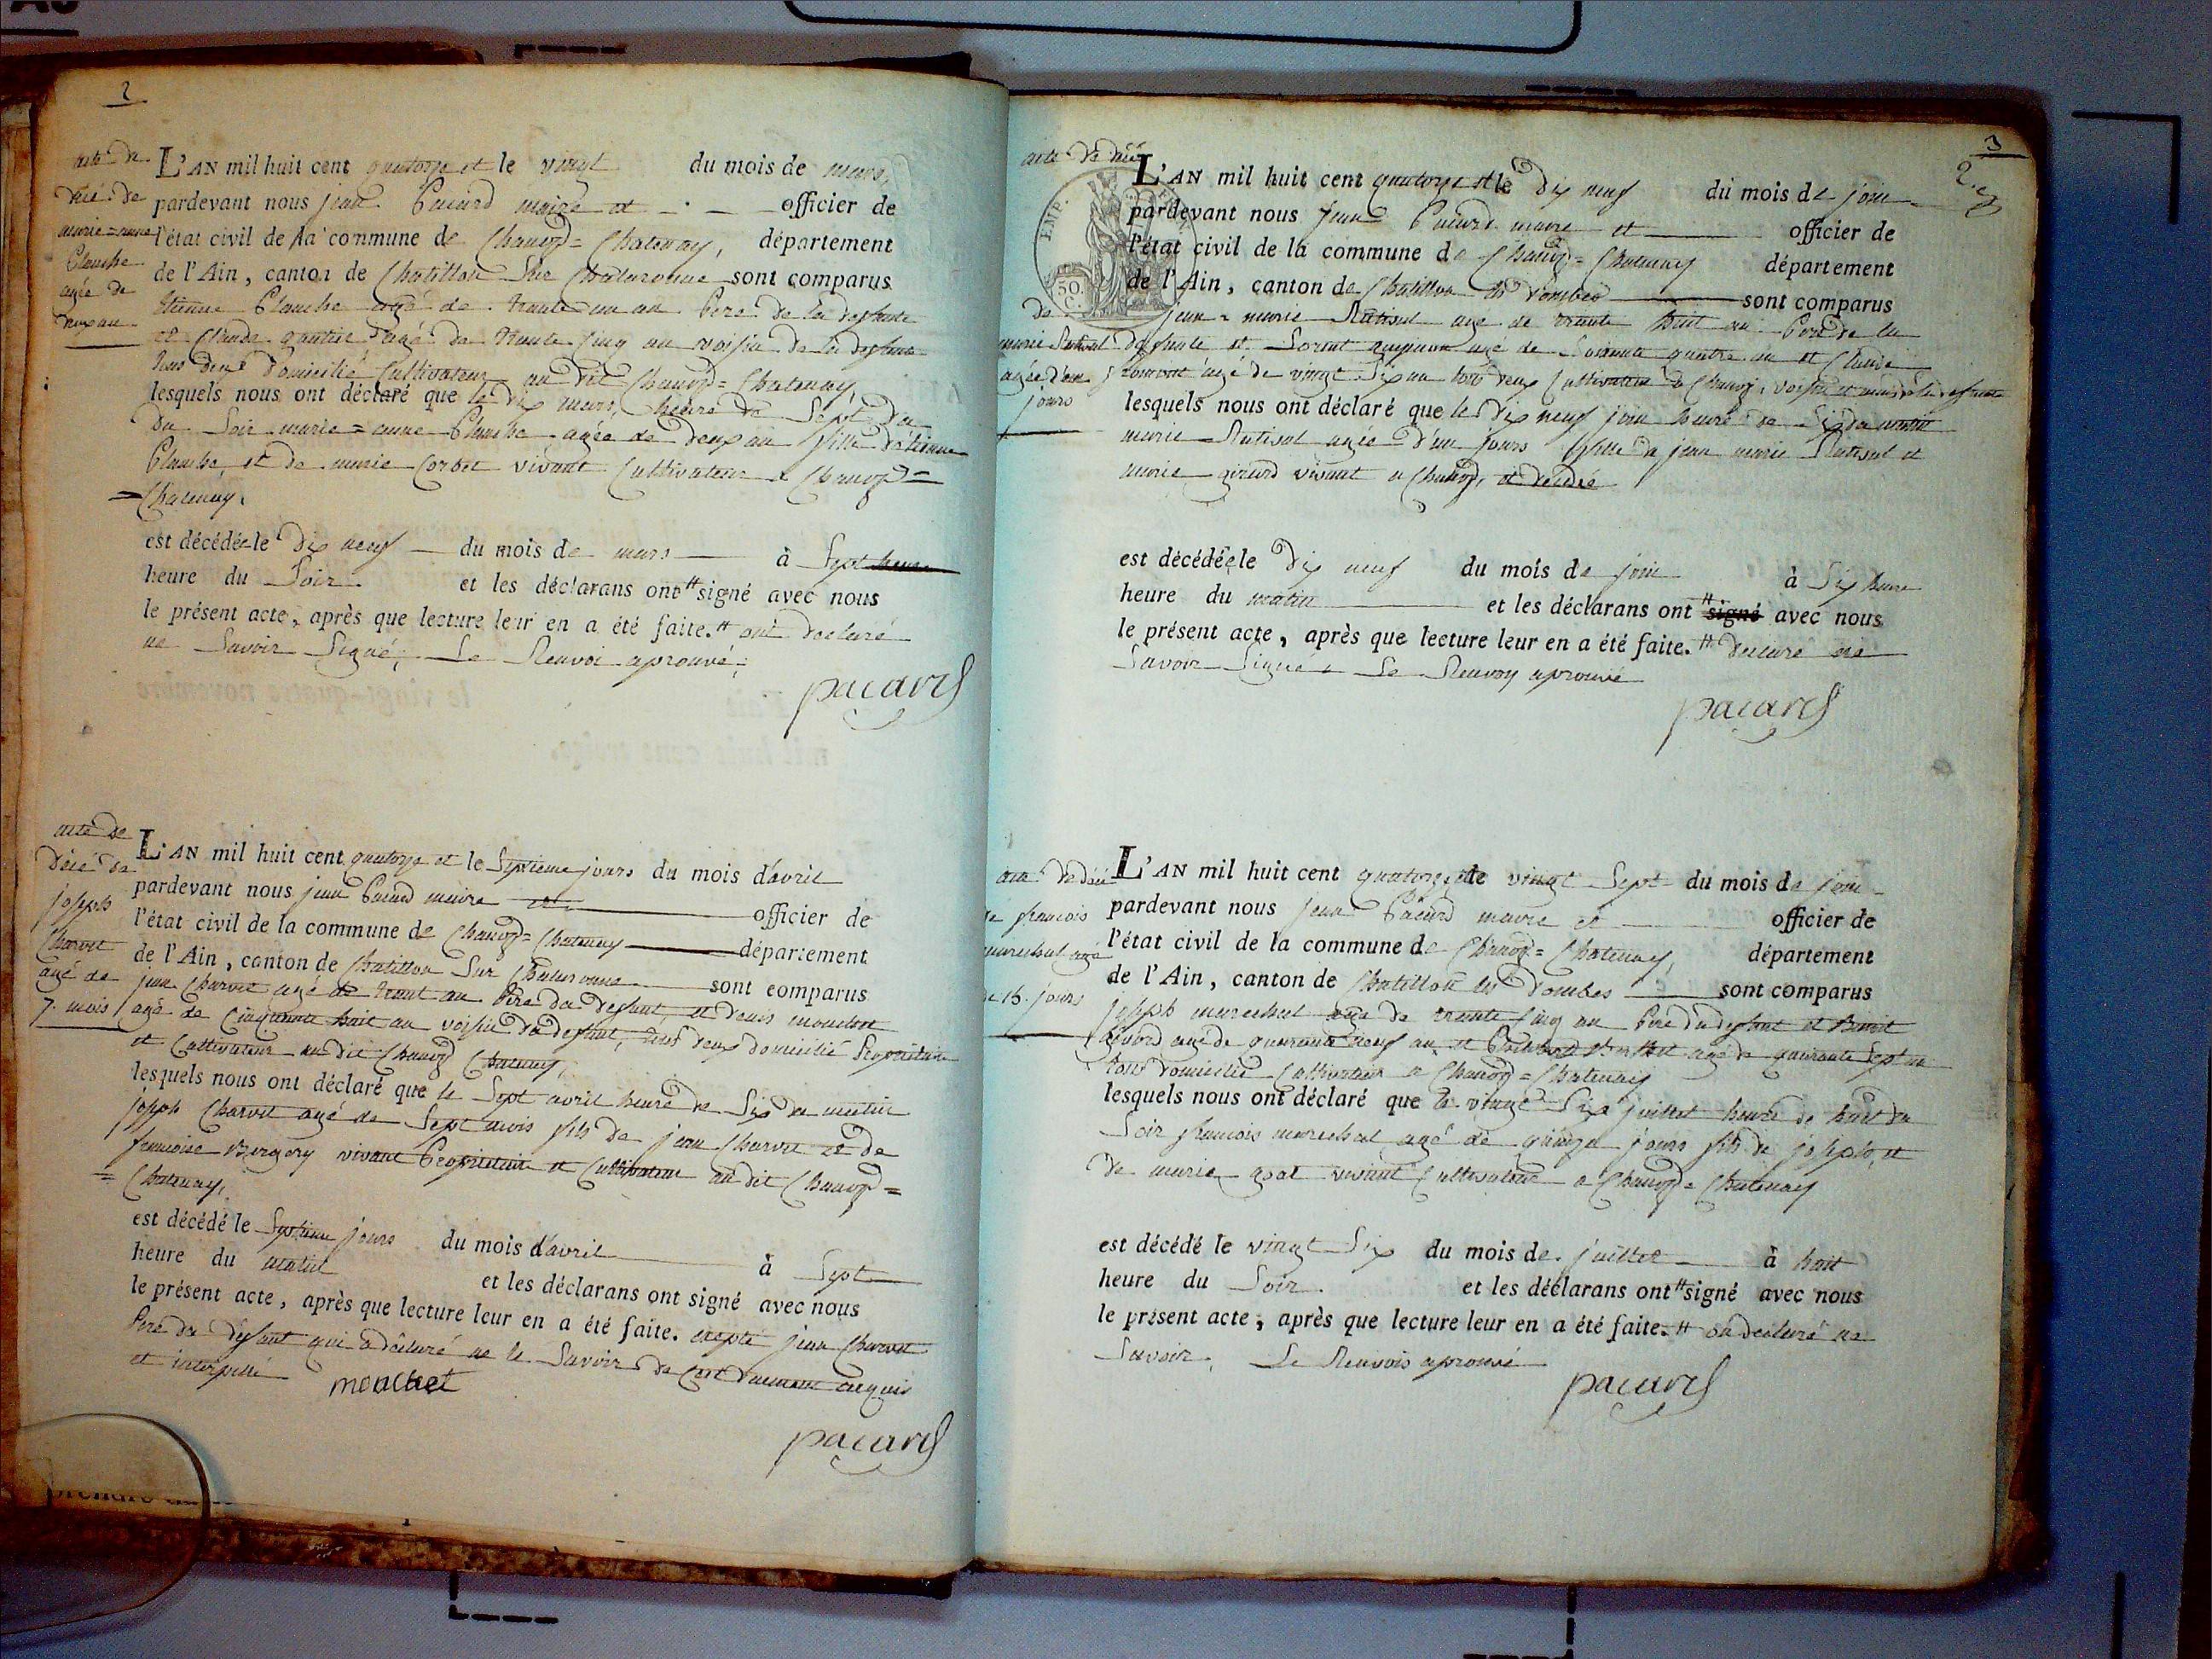 2
acte de
décé de
marie = anne
Planche
agée de
deux an
L'AN mil huit cent quatorze et le vingt du mois de mars,
pardevant nous jean Pacard maire et officier de
l'état civil de la commune de Chanoz = Chatenay, département
de l'Ain, canton de Chatillon sur Chalaronne sont comparus
étienne Planche agé de trante un an Pere de la defunte
et Claude gautier agé de trante cinq an voisin de la defunte
tous deux domicilié Cultivateur au dit Chanoz = Chatenay
lesquels nous ont déclaré que le dix mars, heure de sept du
du soir marie = anne Planche agée de deux an fille détienne
Planche et de marie Corbet vivant Cultivateur a Chanoz =
= Chatenay.
est décédée le dix neuf du mois de mars à sept heure
heure du soir et les déclarans ont # signé avec nous
le présent acte, après que lecture leur en a été faite. # ont declaré
ne savoir signé, Le Renvoi aprouvé,
pacard
acte de
décé de
joseph
Charvet
agé de
7. mois
L'AN mil huit cent quatorze et le septieme jours du mois d'avril
pardevant nous jean Pacard maire et officier de
l'état civil de la commune de Chanoz = Chatenay département
de l'Ain, canton de Chatillon sur Chalaronne sont comparus
jean Charvet agé de trant an Pere du defunt, et denis mouchet
agé de cinquante huit an voisin du defunt, tous deux domicilié Propriétaire
et Cultivateur au dit Chanoz Chatenay,
lesquels nous ont déclaré que le sept avril heure de six du matin
joseph Charvet agé de sept mois fils de jean Charvet et de
francoise Bergery vivant Propriétaire et Cultivateur au dit Chanoz =
= Chatenay,
est décédé le septieme jours du mois d'avril à sept
heure du matin et les déclarans ont signé avec nous
le présent acte, après que lecture leur en a été faite. excepte jean Charvet
Pere du défunt qui a déclaré ne le savoir de cent duement requis
et interpellé mouchet
pacard
3
2.e
acte de décé
EMP.
50.
C.
de
marie Rutisal
agée d'un
jours
L'AN mil huit cent quatorze et le dix neuf du mois de join
pardevant nous jean Pacard maire et officier de
l'état civil de la commune de Chanoz = Chatenay département
de l'Ain, canton de Chatillon les Dombes sont comparus
jean = marie Rutisal agé de trante huit an Pere de la
defunte et agé de soixante quatre an et Claude
agé de vingt six an tous deux Cultivateur a Chanoz, voisin
lesquels nous ont déclaré que le dix neuf join heure de six du matin
marie Rutisal agée d'un jours fille de jean marie Rutisal et
marie girard vivant a Chanoz, et décédé
est décédée le dix neuf du mois de join à six heure
heure du matin et les déclarans ont # signé avec nous
le présent acte, après que lecture leur en a été faite. # declaré ne
savoir signé Le Renvoy aprouvé
pacard
acte de décé
de francois
marechal agé
de 15. jours
L'AN mil huit cent quatorze et le vingt sept du mois de join
pardevant nous jean Pacard maire et officier de
l'état civil de la commune de Chanoz = Chatenay, département
de l'Ain, canton de Chatillon les Dombes sont comparus
joseph marechal agé de trante cinq an Pere du defunt et Benoit
agé de quarante neuf an et agé de quarante sept an
tous domicilié Cultivateur a Chanoz = Chatenay
lesquels nous ont déclaré que le vingt six juillet heure de huit du
soir francois marechal agé de quinze jours fils de joseph, et
de marie vivant Cultivateur a Chanoz = Chatenay
est décédé le vingt six du mois de juillet à huit
heure du soir et les déclarans ont # signé avec nous
le présent acte, après que lecture leur en a été faite. # on declaré ne
savoir, Le Renvois aprouvé
pacard